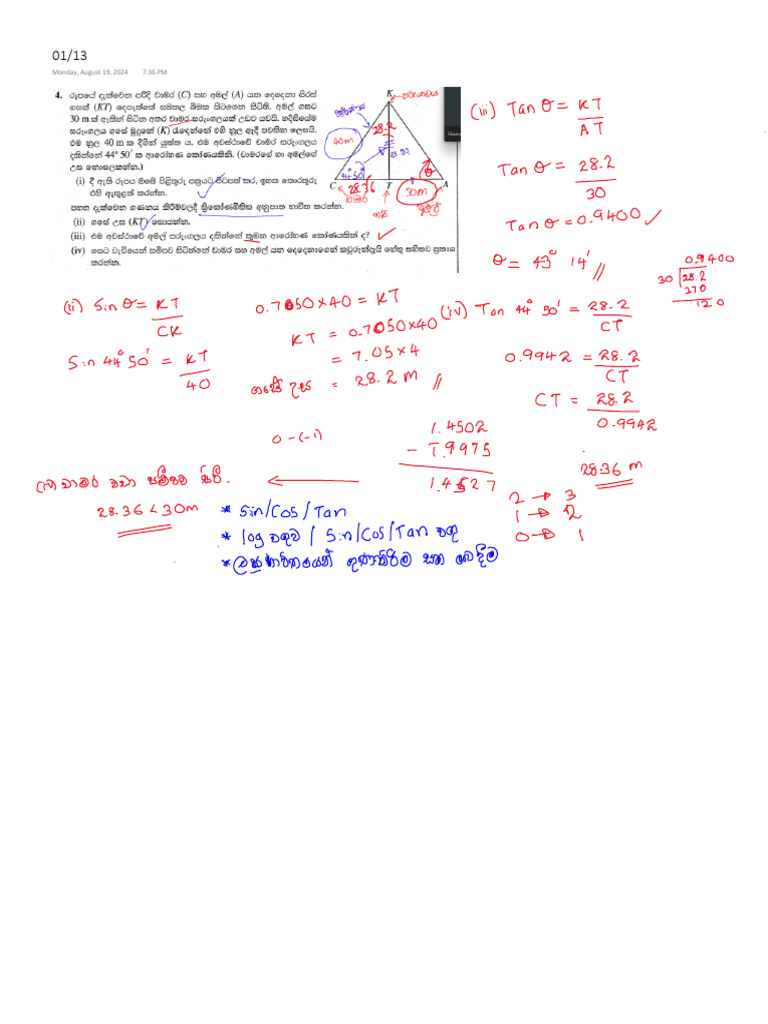 01/13
Monday, August 19, 2024 7:36 PM
4. රූපයේ දැක්වෙන පරිදි චාමර (C) සහ අමල් (A) යන දෙදෙනා සිරස්
ගසක් (KT) දෙපැත්තේ සමතල බිමක සිටගෙන සිටිති. අමල් ගසට
30 m ක් ඈතින් සිටින අතර චාමර සරුංගලයක් උඩට යවයි. හදිසියේම
සරුංගලය ගසේ මුදුනේ (K) රැඳෙන්නේ එහි නූල ඇදී පවතින ලෙසයි.
එම නූල 40 m ක දිගින් යුක්ත ය. එම අවස්ථාවේ චාමර සරුංගලය
දකින්නේ 44° 50′ ක ආරෝහණ කෝණයකිනි. (චාමරගේ හා අමල්ගේ
උස නොසලකන්න.)
(i) දී ඇති රූපය ඔබේ පිළිතුරු පත්‍රයට පිටපත් කර, ඉහත තොරතුරු
එහි ඇතුළත් කරන්න.
පහත දැක්වෙන ගණනය කිරීම්වලදී ත්‍රිකෝණමිතික අනුපාත භාවිත කරන්න.
(ii) ගසේ උස (KT) සොයන්න.
(iii) එම අවස්ථාවේ අමල් සරුංගලය දකින්නේ කුමන ආරෝහණ කෝණයකින් ද?
(iv) ගසට වැඩියෙන් සමීපව සිටින්නේ චාමර සහ අමල් යන දෙදෙනාගෙන් කවුරුන්දැයි හේතු සහිතව ප්‍රකාශ
කරන්න.
K
සරුංගලය
28.2
40m
44° 50′
θ
C 28.36 T 30m A
චාමර
ගස
අමල්
(iii) Tan θ = KT
AT
Tan θ = 28.2
30
Tan θ = 0.9400
θ = 43° 14′
0.9400
30 28.2
270
120
(ii) Sin θ = KT
CK
Sin 44° 50′ = KT
40
0.7050 × 40 = KT
KT = 0.7050 × 40
= 7.05 × 4
ගසේ උස = 28.2 m
(iv) Tan 44° 50′ = 28.2
CT
0.9942 = 28.2
CT
CT = 28.2
0.9942
28.36 m
0 - (-1)
1.4502
1.4527
චාමර වඩා සමීපව සිටී.
28.36 < 30m
2 → 3
1 → 2
0 → 1
* Sin/Cos/Tan
* log වගුව / Sin/Cos/Tan වගු
* ලඝුභාවිතයෙන් ගුණකිරීම සහ බෙදීම